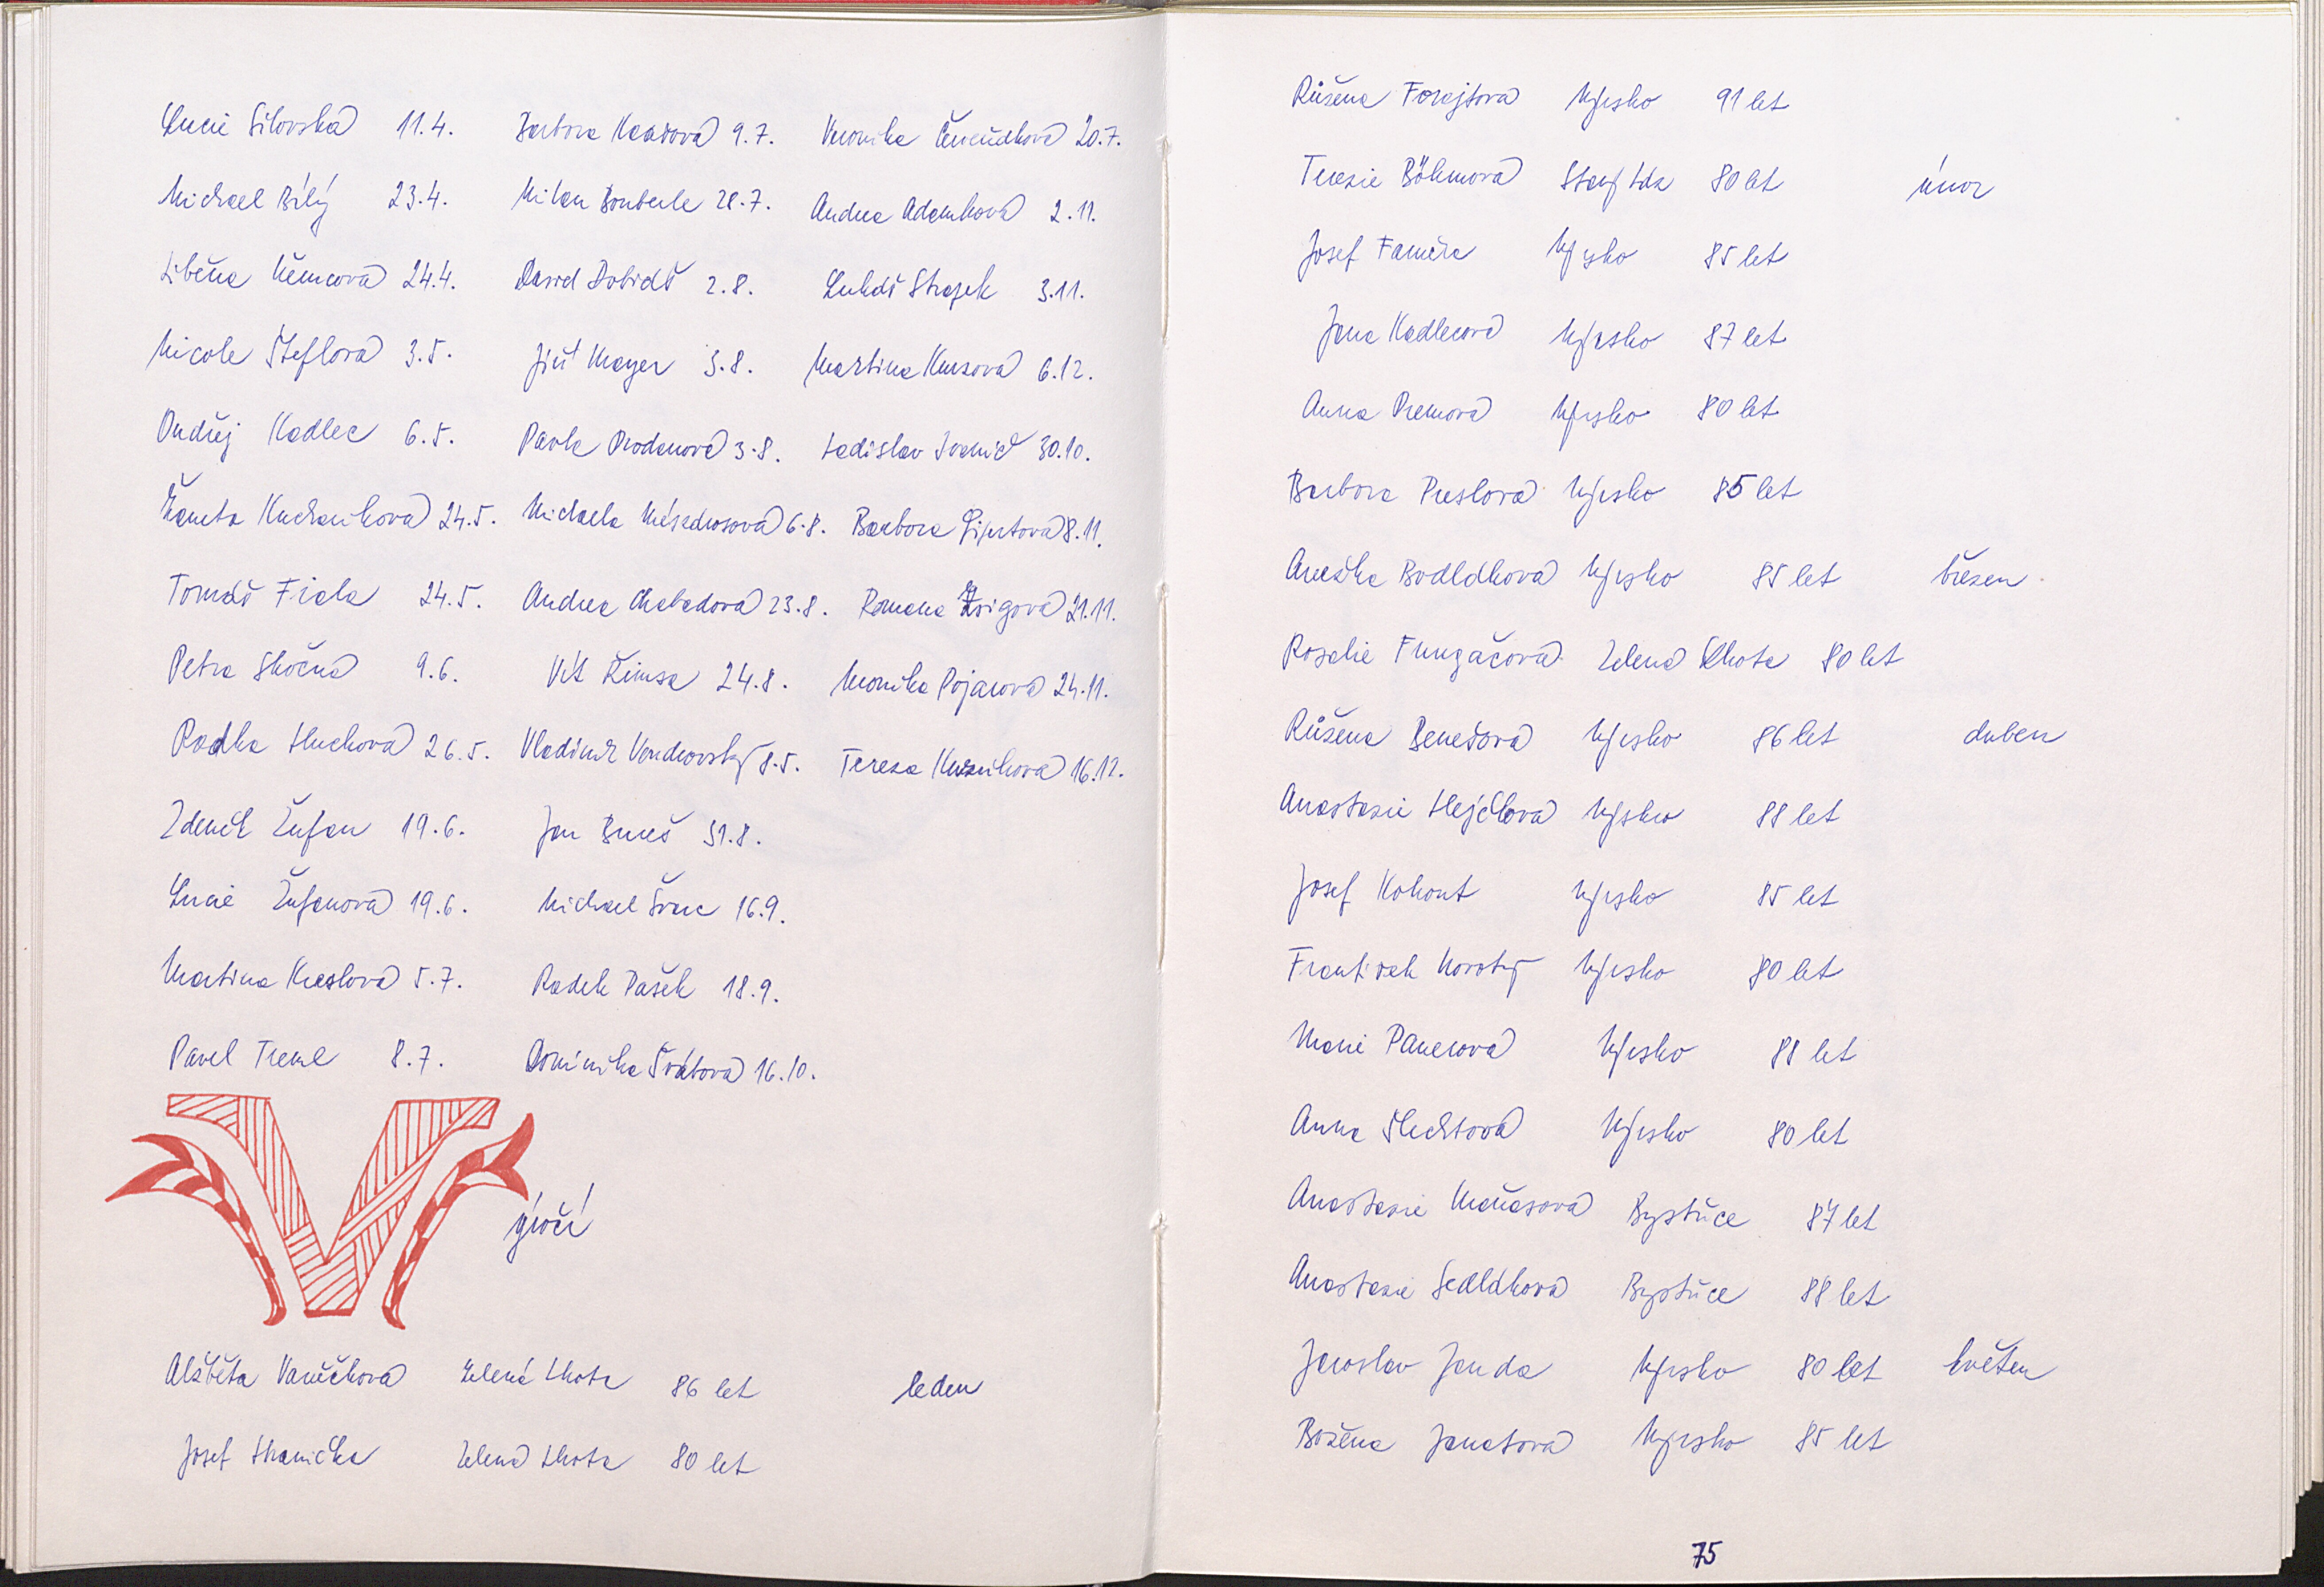 Lucie Silovská 11.4. Barbora Kansová 9.7. Veronika Červeňáková 20.7.
Michael Bílý 23.4. Milan Bouberle 28.7. Andrea Adamková 2.11.
Liběna Němcová 24.4. David Dobiáš 2.8. Lukáš Strapek 3.11.
Nicole Šteflová 3.5. Jiří Mayer 3.8. Martina Kursová 6.12.
Ondřej Kadlec 6.5. Pavla Prodanová 3.8. Ladislav Ivanič 30.10.
Žaneta Kuchariková 24.5. Michaela Mészárosová 6.8. Barbora Gipertová 8.11.
Tomáš Fiala 24.5. Andrea Chabadová 23.8. Romana Zsigová 21.11.
Petra Skočná 9.6. Vít Řimsa 24.8. Monika Pojarová 24.11.
Radka Hluchová 26.5. Vladimír Vondrovský 8.5. Tereza 16.12.
Zdeněk Žufan 19.6. Jan Bureš 31.8.
Lucie Žufanová 19.6. Michael Švarc 16.9.
Martina Kreslová 5.7. Radek Pašek 18.9.
Pavel Treml 8.7. Dominika Švábová 16.10.
Výročí
Alžběta Vaněčková Zelená Lhota 86 let leden
Josef Hranička Zelená Lhota 80 let
Růžena Forejtová Nýrsko 91 let
Terezie Böhmová Starý Láz 80 let únor
Josef Faměra Nýrsko 85 let
Jana Kadlecová Nýrsko 87 let
Anna Premová Nýrsko 80 let
Barbora Preslová Nýrsko 85 let
Anežka Bodláková Nýrsko 85 let březen
Rosalie Fungačová Zelená Lhota 80 let
Růžena Benešová Nýrsko 86 let duben
Anastazie Hejčlová Nýrsko 88 let
Josef Kohout Nýrsko 85 let
František Novotný Nýrsko 80 let
Marie Panerová Nýrsko 88 let
Anna Šlechtová Nýrsko 80 let
Anastazie Maňasová Bystřice 87 let
Anastazie Sedláková Bystřice 88 let
Jaroslav Janda Nýrsko 80 let květen
Božena Janatová Nýrsko 85 let
75